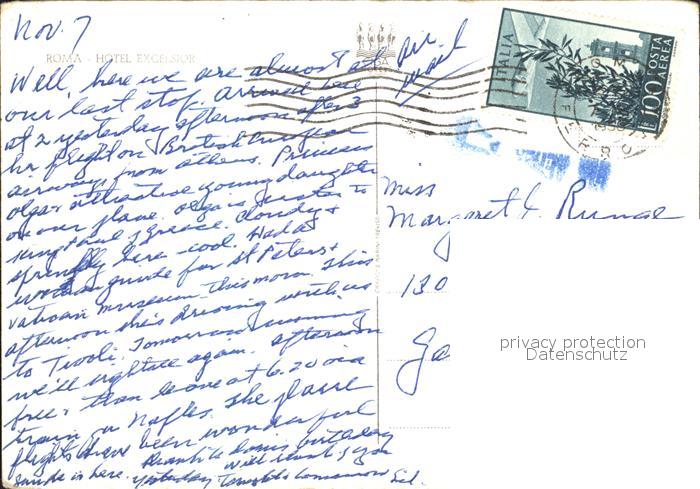 Nov. 7
ROMA - HOTEL EXCELSIOR
Well, here we are almost at
our last stop. Arrived here
at 2 yesterday afternoon after 3
hr flight on British European
airways from Athens. Princess
Olga + attractive young daughter
on our plane. Olga is sister to
King Paul of Greece. Cloudy +
sprinkly here - cool. Had a
woman guide for St Peters +
Vatican museum this morn. This
afternoon she's driving with us
to Tivoli. Tomorrow morning
we'll sightsee again. afternoon
free + then leave at 6.20 via
train for Naples. The plane
flights have been wonderful
yesterday
air mail
ITALIA
POSTA AEREA
L.100
Miss
Margaret
130
Ga
privacy protection
Datenschutz